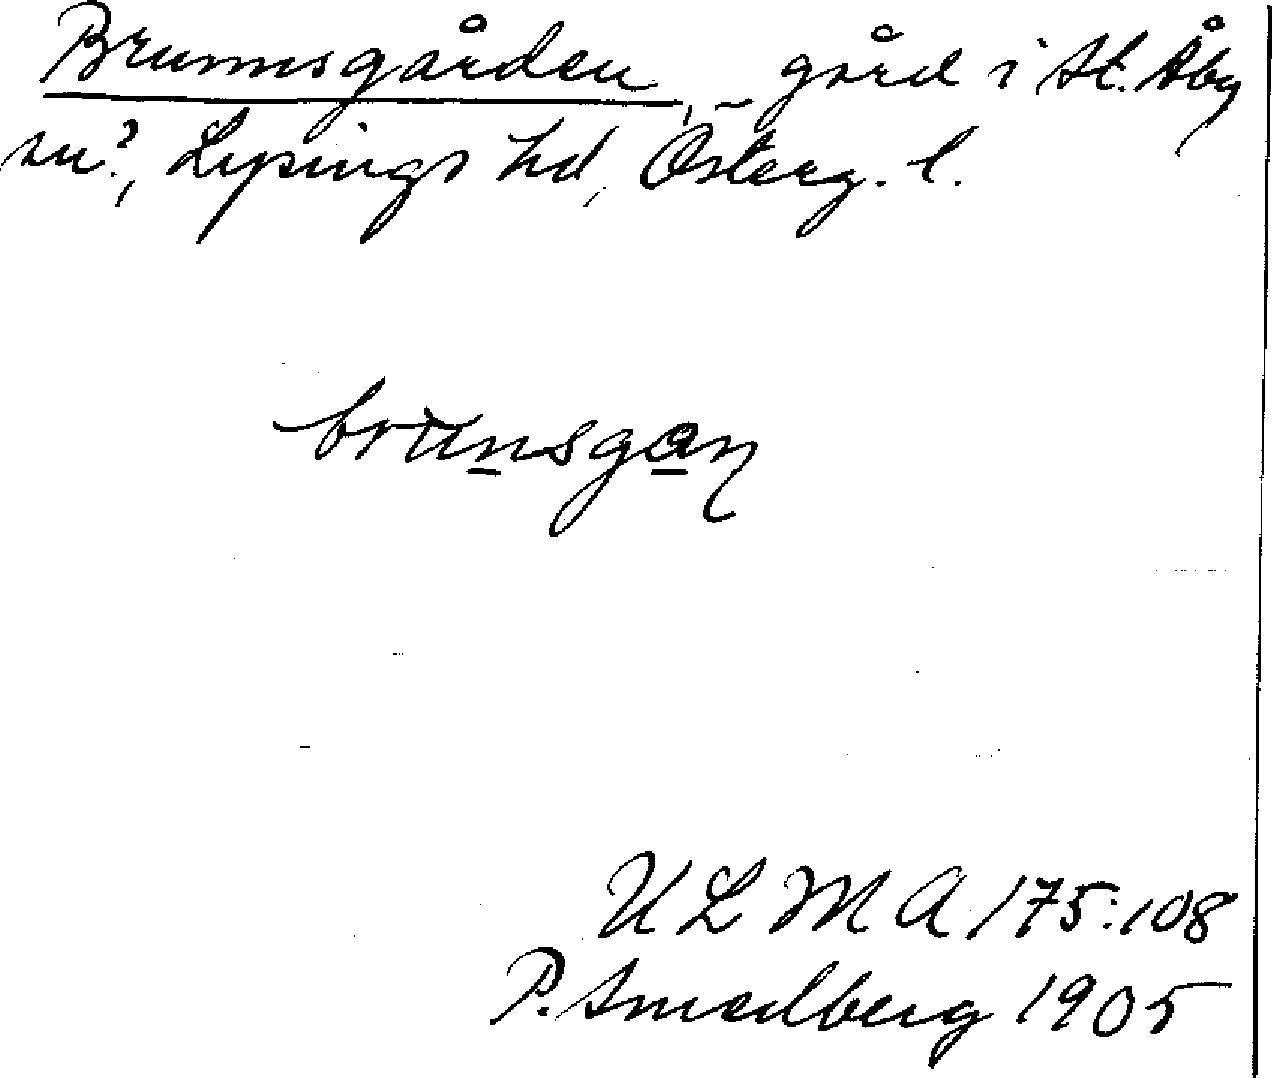 Brunnsgården, gård i St. Åby
sn?, Lysings hd, Österg. l.
brunsgɑn
U L M A 175:108
P. Smedberg 1905